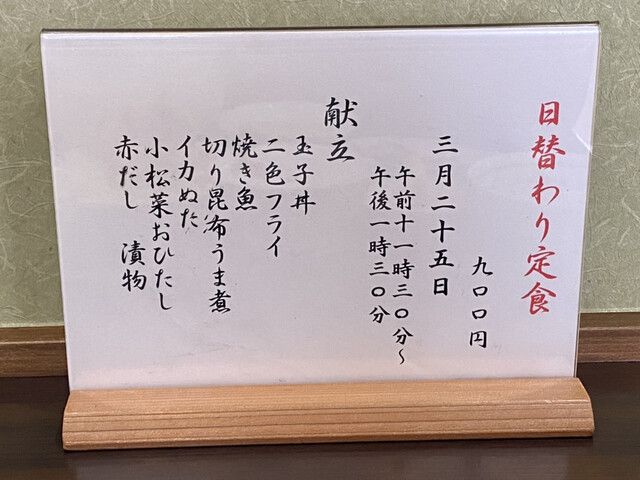 日替わり定食
九〇〇円
三月二十五日
午前十一時三〇分～
午後一時三〇分
献立
玉子丼
二色フライ
焼き魚
切り昆布うま煮
イカぬた
小松菜おひたし
赤だし　漬物